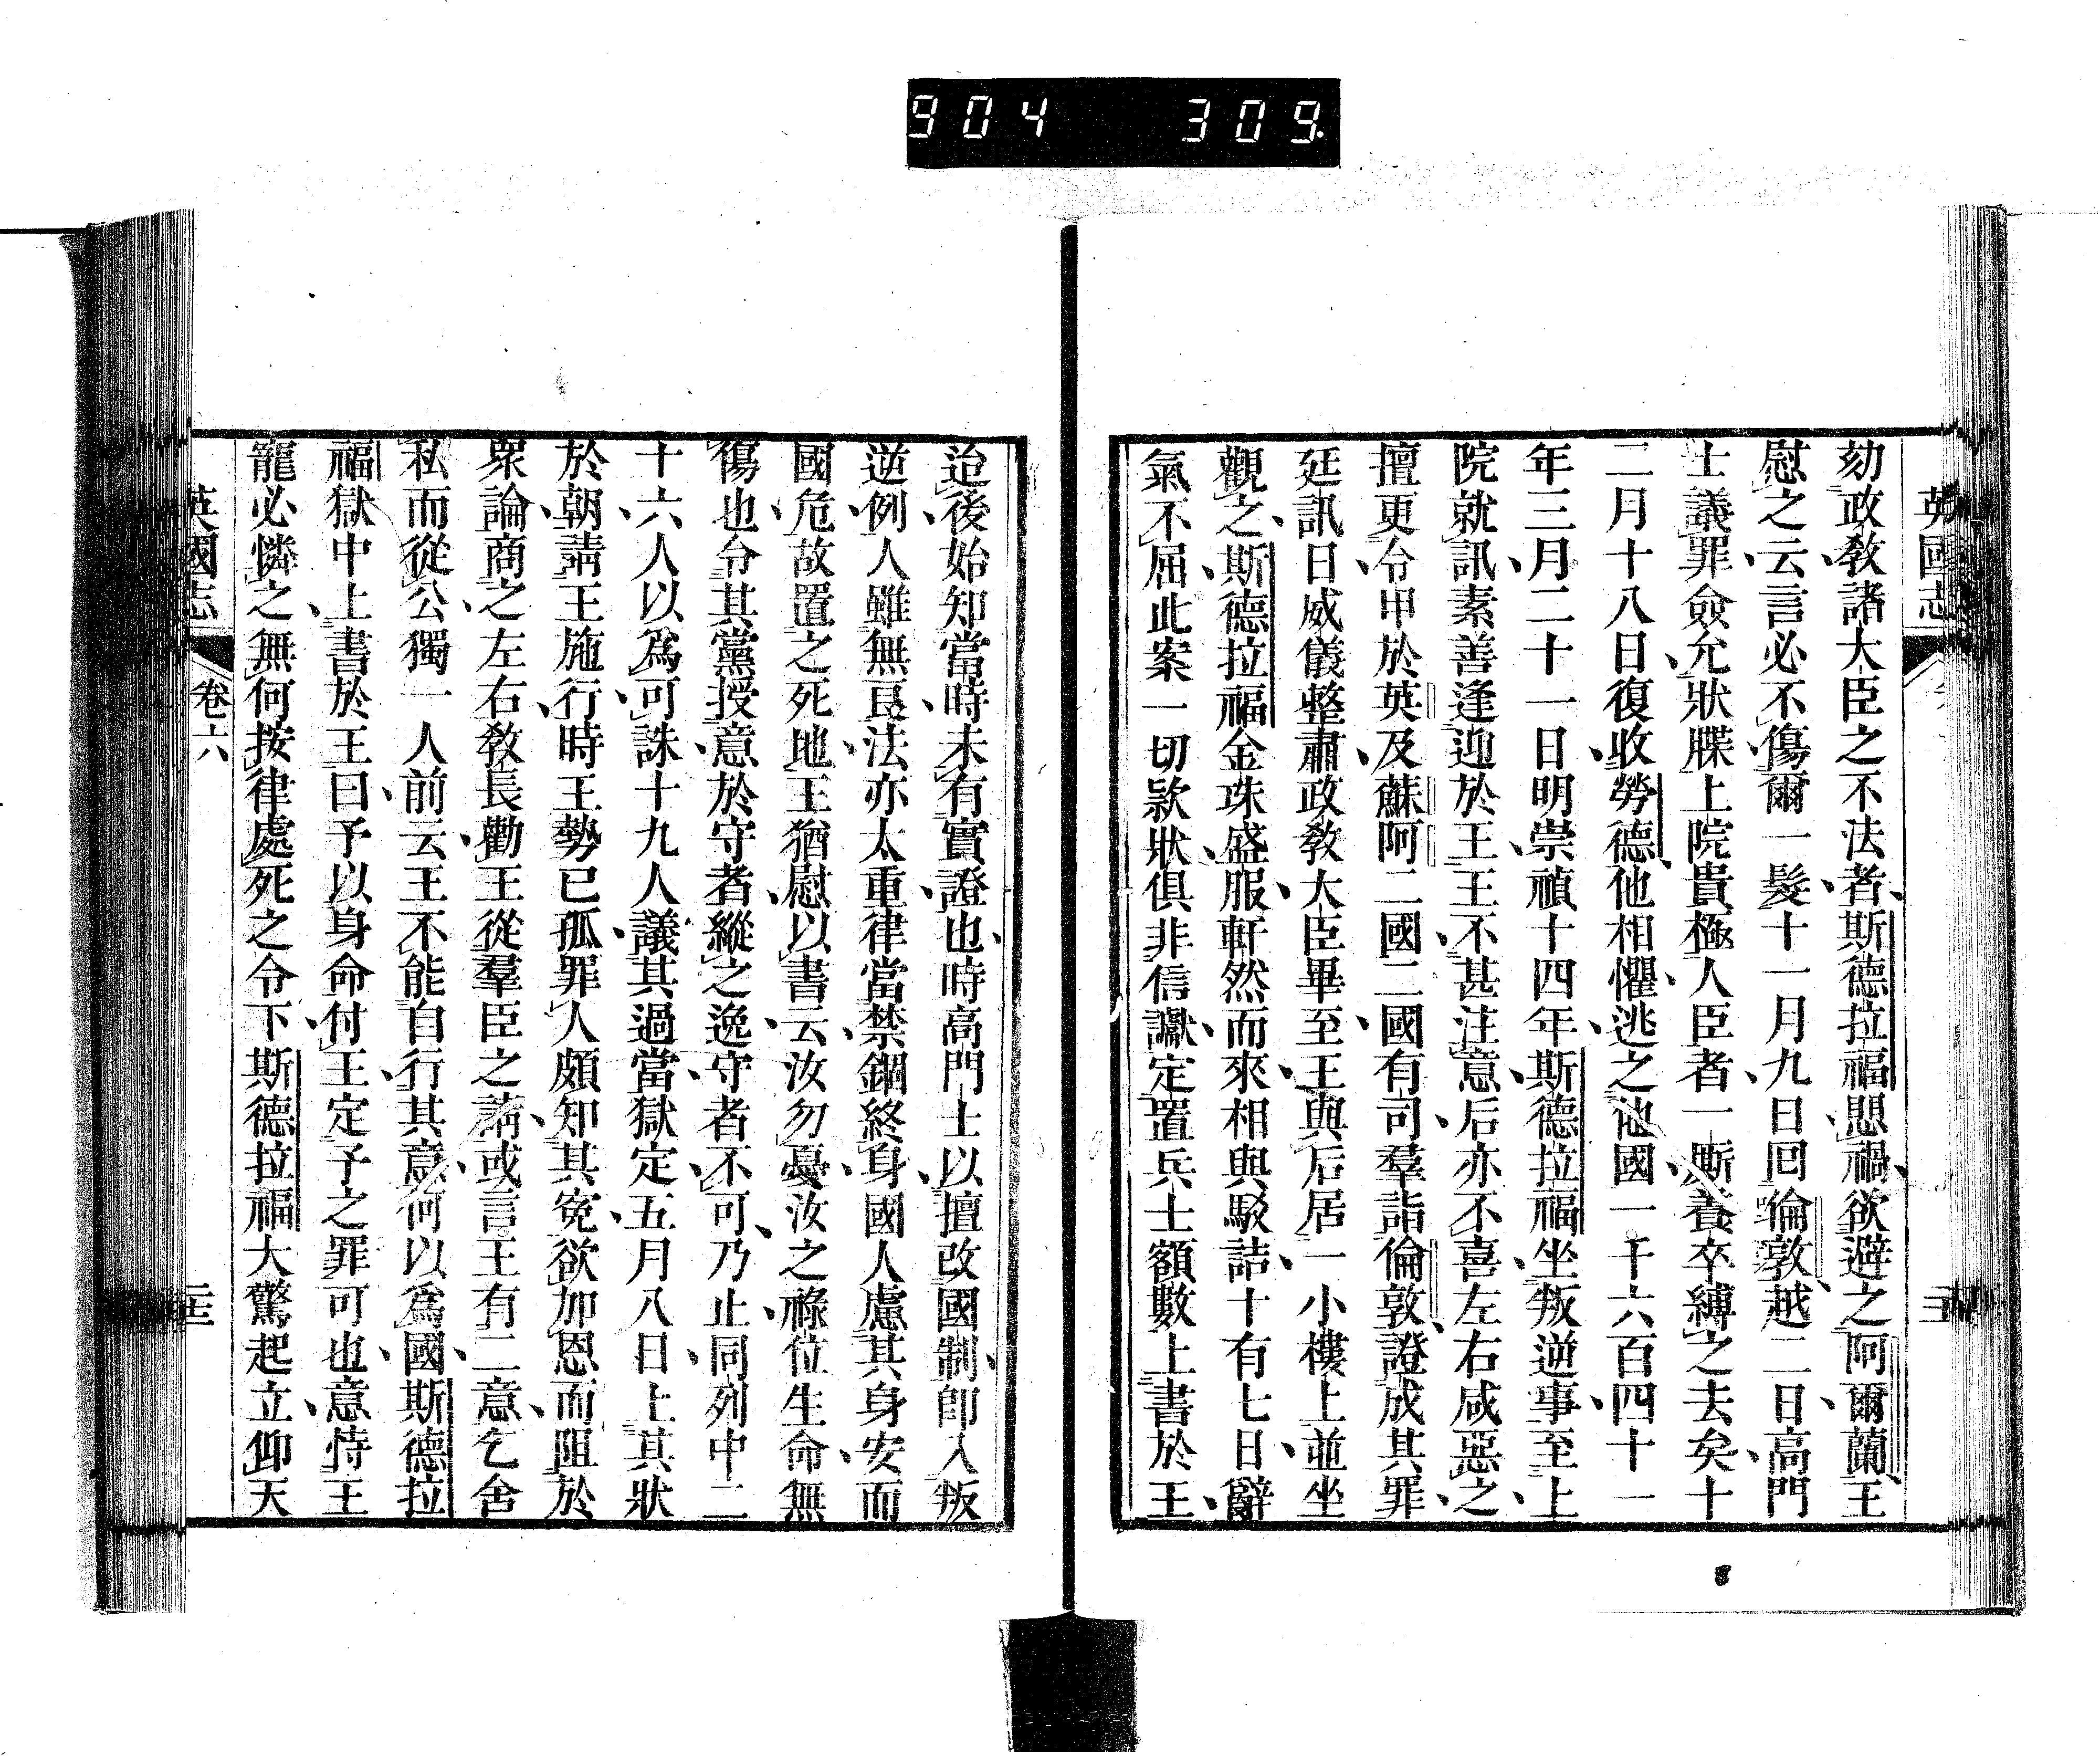 904 309.
英國志
劾政敎諸大臣之不法者斯德拉福思禍欲避之阿爾蘭王
慰之云言必不傷爾一髮十一月九日回倫敦越二日高門
士議罪僉允狀牒上院貴極人臣者一厮養卒縛之去矣十
二月十八日復收勞德他相懼逃之他國一千六百四十一
年三月二十一日明崇禎十四年斯德拉福坐叛逆事至上
院就訊素善逢迎於王王不甚注意后亦不喜左右咸惡之
擅更令甲於英及蘇阿二國二國有司羣詣倫敦證成其罪
廷訊日威儀整肅政敎大臣畢至王與后居一小樓上並坐
觀之斯德拉福金珠盛服軒然而來相與駁詰十有七日辭
氣不屈此案一切款狀俱非信讞定置兵士額數上書於王
迨後始知當時未有實證也時高門士以擅改國制卽入叛
逆例人雖無良法亦太重律當禁錮終身國人慮其身安而
國危故置之死地王猶慰以書云汝勿憂汝之祿位生命無
傷也令其黨授意於守者縱之逸守者不可乃止同列中二
十六人以爲可誅十九人議其過當獄定五月八日上其狀
於朝請王施行時王勢已孤罪人頗知其寃欲加恩而阻於
衆論商之左右敎長勸王從羣臣之請或言王有二意乞舍
私而從公獨一人前云王不能自行其意何以爲國斯德拉
福獄中上書於王曰予以身命付王定予之罪可也意恃王
寵必憐之無何按律處死之令下斯德拉福大驚起立仰天
英國志
卷六